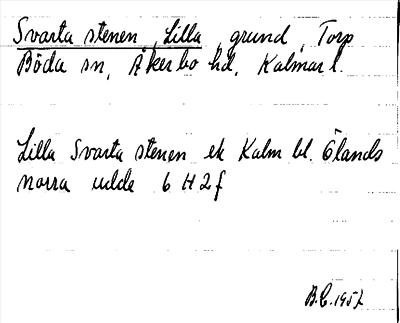 Svarta stenen, Lilla, grund, Torp
Böda sn, Åkerbo hd, Kalmar l.
Lilla Svarta stenen ek Kalm bl. Ölands
norra udde 6 H 2 f
B.E. 1957